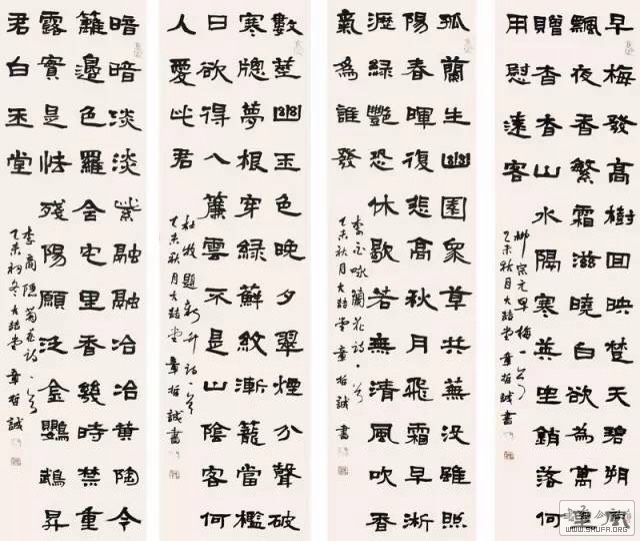 早梅發高樹回映楚天碧朔風
飄夜香繁霜滋曉白欲為萬里
贈杳杳山水隔寒英坐銷落何
用慰遠客
柳宗元早梅一首
乙未秋月大堂章哲誠書
孤蘭生幽園眾草共蕪沒雖照
陽春暉復悲高秋月飛霜早淅
瀝綠豔恐休歇若無清風吹香
氣為誰發
李白詠蘭花詩一首
乙未秋月大堂章哲誠書
數莖幽玉色晚夕翠煙分聲破
寒牕夢根穿綠蘚紋漸籠當檻
日欲得入簾雲不是山陰客何
人愛此君
杜牧題新竹詩一首
乙未秋月大堂章哲誠書
暗暗淡淡紫融融冶冶黃陶令
籬邊色羅含宅里香幾時禁重
露實是怯殘陽願泛金鸚鵡昇
君白玉堂
李商隱菊花詩一首
乙未初冬大堂章哲誠
WWW.SHUFA.ORG